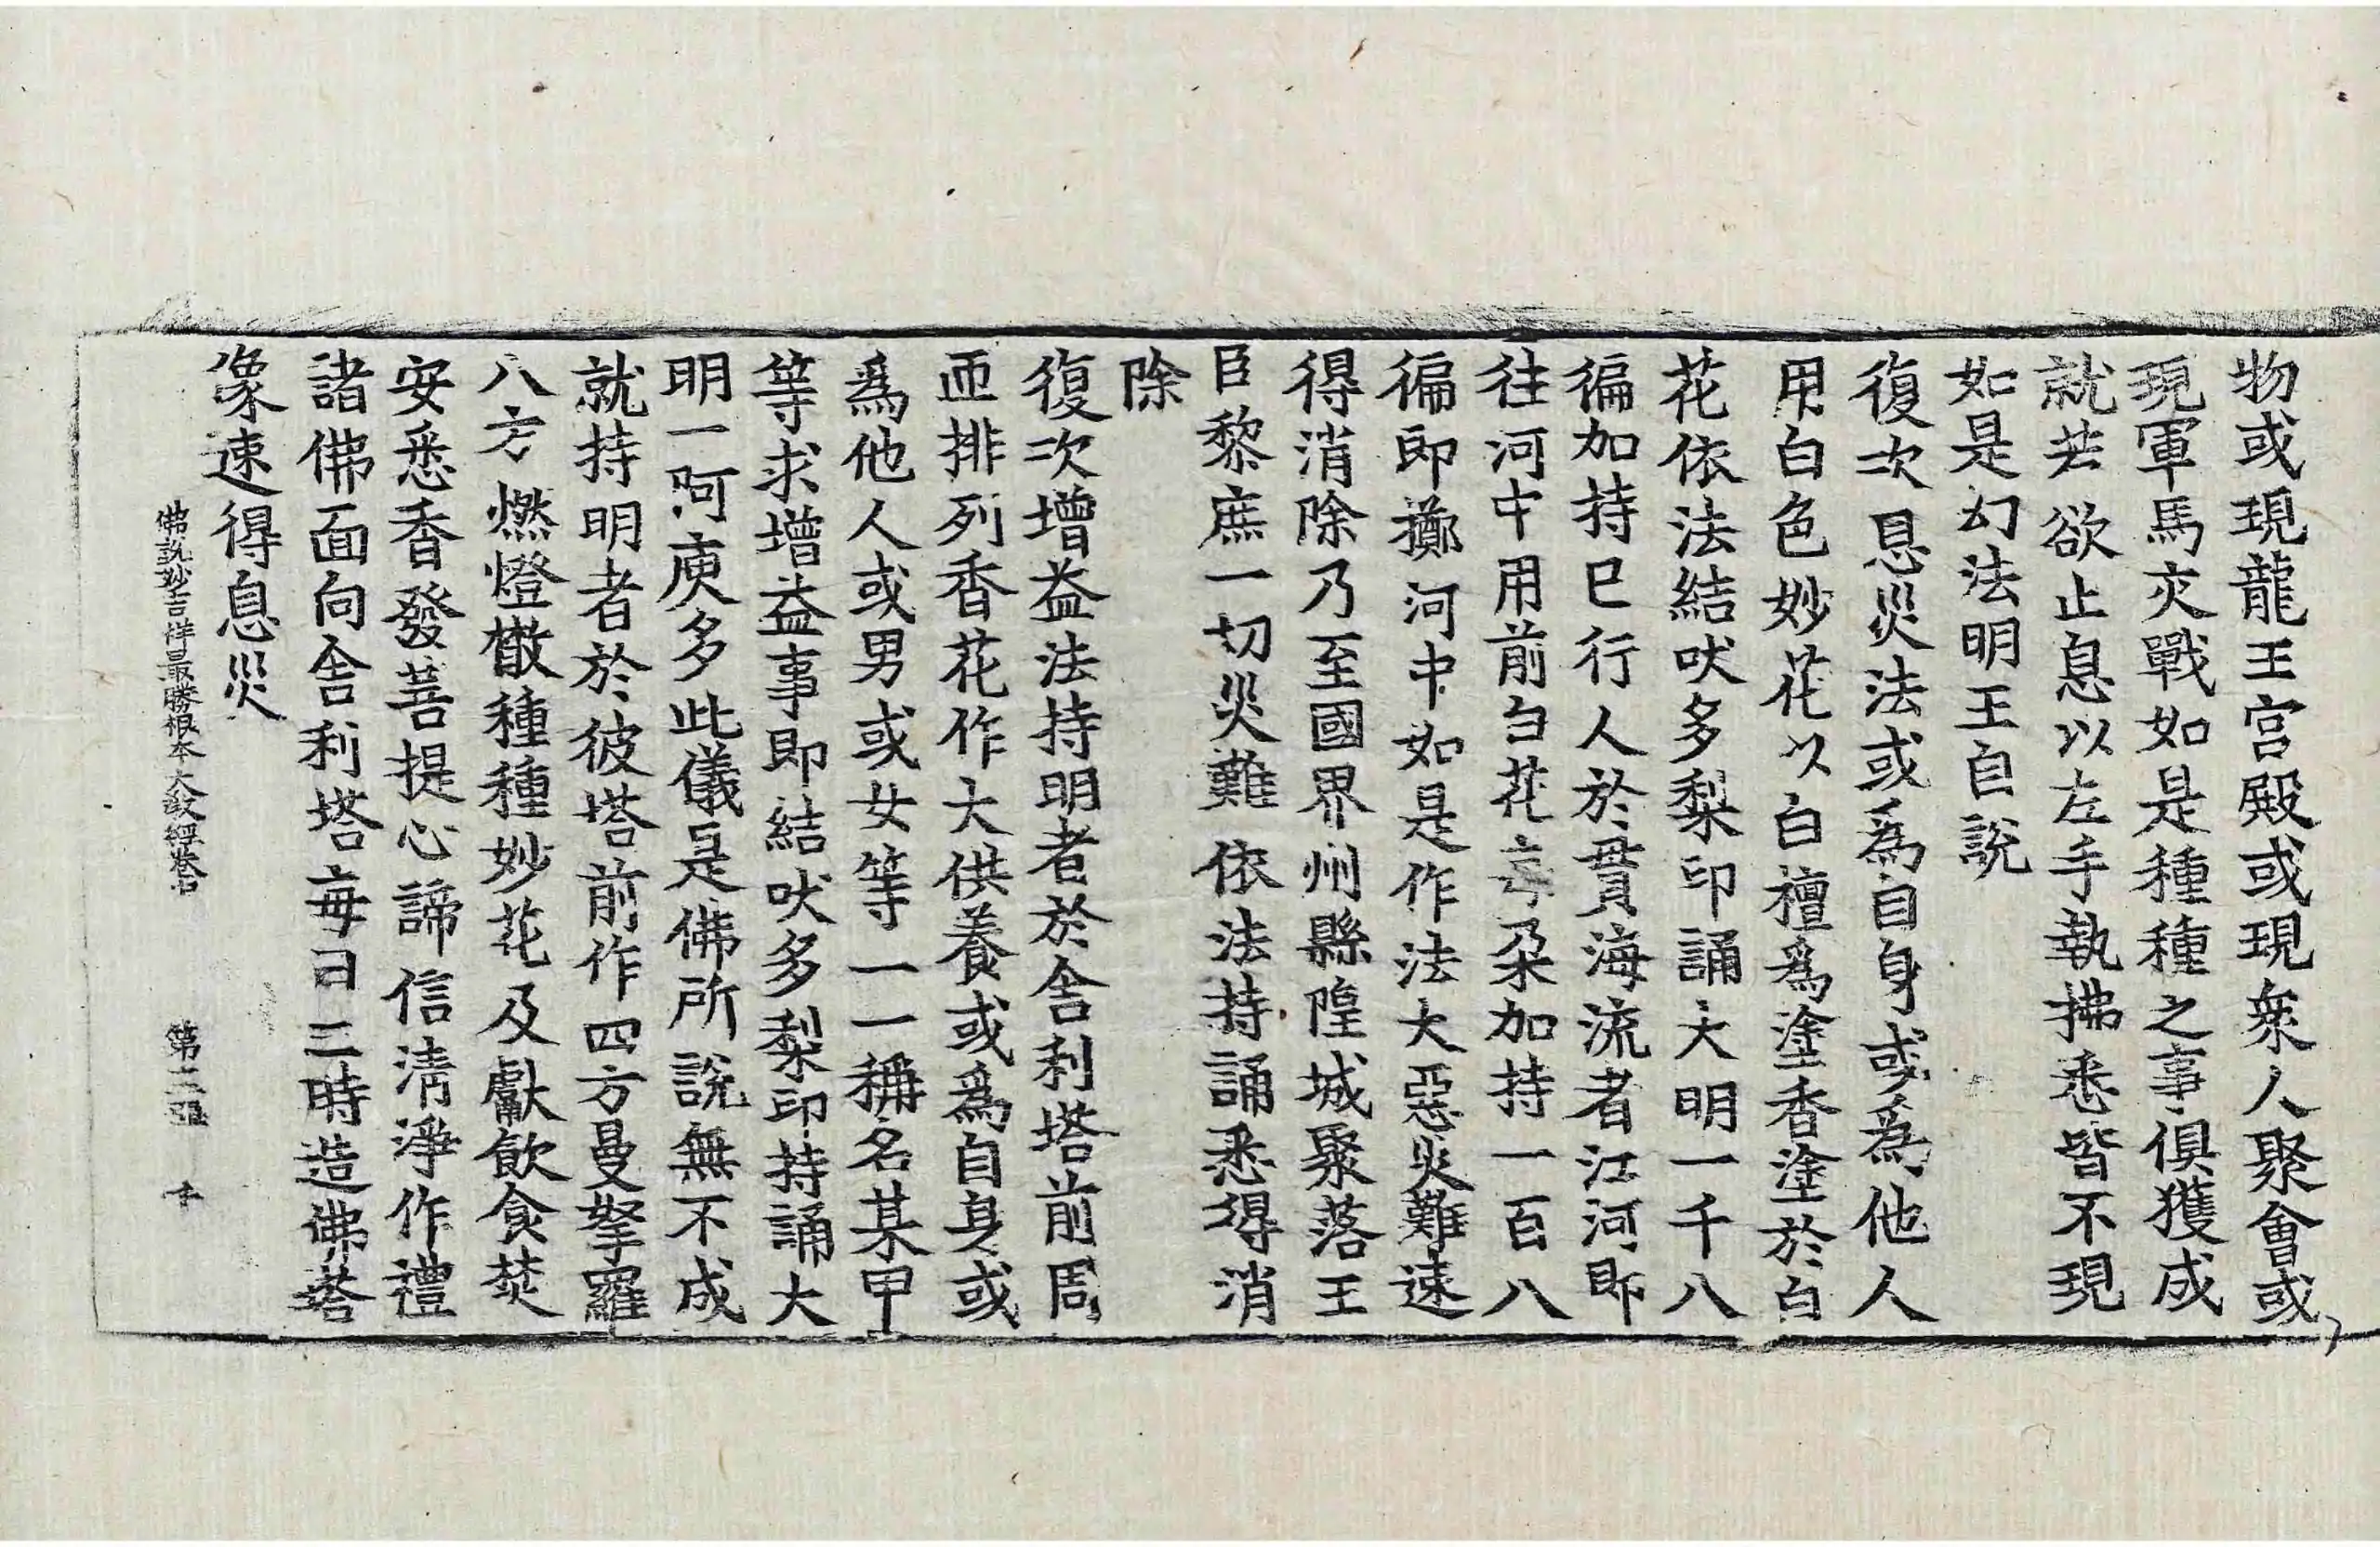 物或現龍王宮殿或現衆人聚會或
現軍馬交戰如是種種之事俱獲成
就若欲止息以左手執拂悉皆不現
如是幻法明王自說
復次息災法或爲自身或爲他人
用白色妙花以白檀爲塗香塗於白
花依法結吠多梨印誦大明一千八
徧加持已行人於貫海流者江河即
往河中用前白花每朵加持一百八
徧即擲河中如是作法大惡災難速
得消除乃至國界州縣隍城聚落王
臣黎庶一切災難依法持誦悉得消
除
復次增益法持明者於舍利塔前周
帀排列香花作大供養或爲自身或
爲他人或男或女等一一稱名某甲
等求增益事即結吠多梨印持誦大
明一阿庾多此儀是佛所說無不成
就持明者於彼塔前作四方曼拏羅
八方燃燈㪚種種妙花及獻飲食焚
安悉香發菩提心諦信清淨作禮
諸佛面向舍利塔每日三時造佛塔
像速得息災
佛說妙吉祥最勝根本大教經卷中 第二張